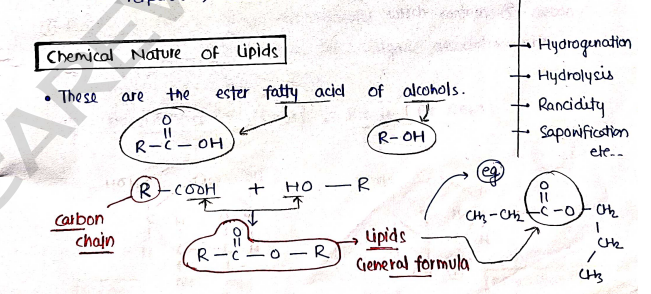 Chemical Nature of Lipids
• These are the ester fatty acid of alcohols.
O
||
R-C-OH
R-OH
R-COOH + HO-R
carbon
chain
O
||
R-C-O-R
Lipids
General formula
eg
O
||
CH3-CH2-C-O-CH2
CH2
CH3
Hydrogenation
Hydrolysis
Rancidity
Saponification
etc..
CAREW